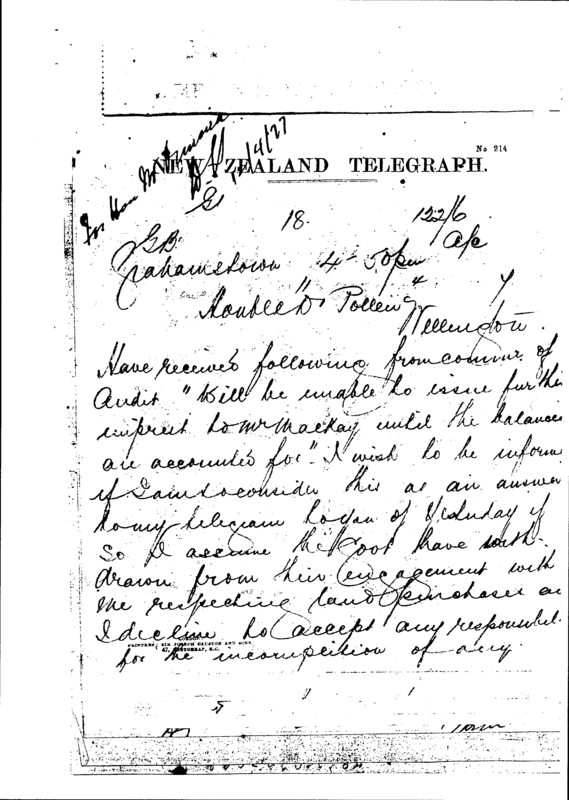 For Hon Mr
12/4/77
No 214
NEW ZEALAND TELEGRAPH.
18. 122/6
GB a/c
Grahamstown 4-50 pm
Honble Dr Pollen
Wellington.
Have received following from commr of
Audit "Will be unable to issue further
imprest to Mr Mackay until the balances
are accounted for". I wish to be informed
if I am to consider this as an answer
to my telegram to you of Yesterday if
so I assume the Govt have with-
drawn from their engagement with
me respecting land purchases as
I decline to accept any responsibil.
PRINTERS: SIR JOSEPH CAUSTON AND SONS,
47, EASTCHEAP, E.C.
for the incompletion of any.